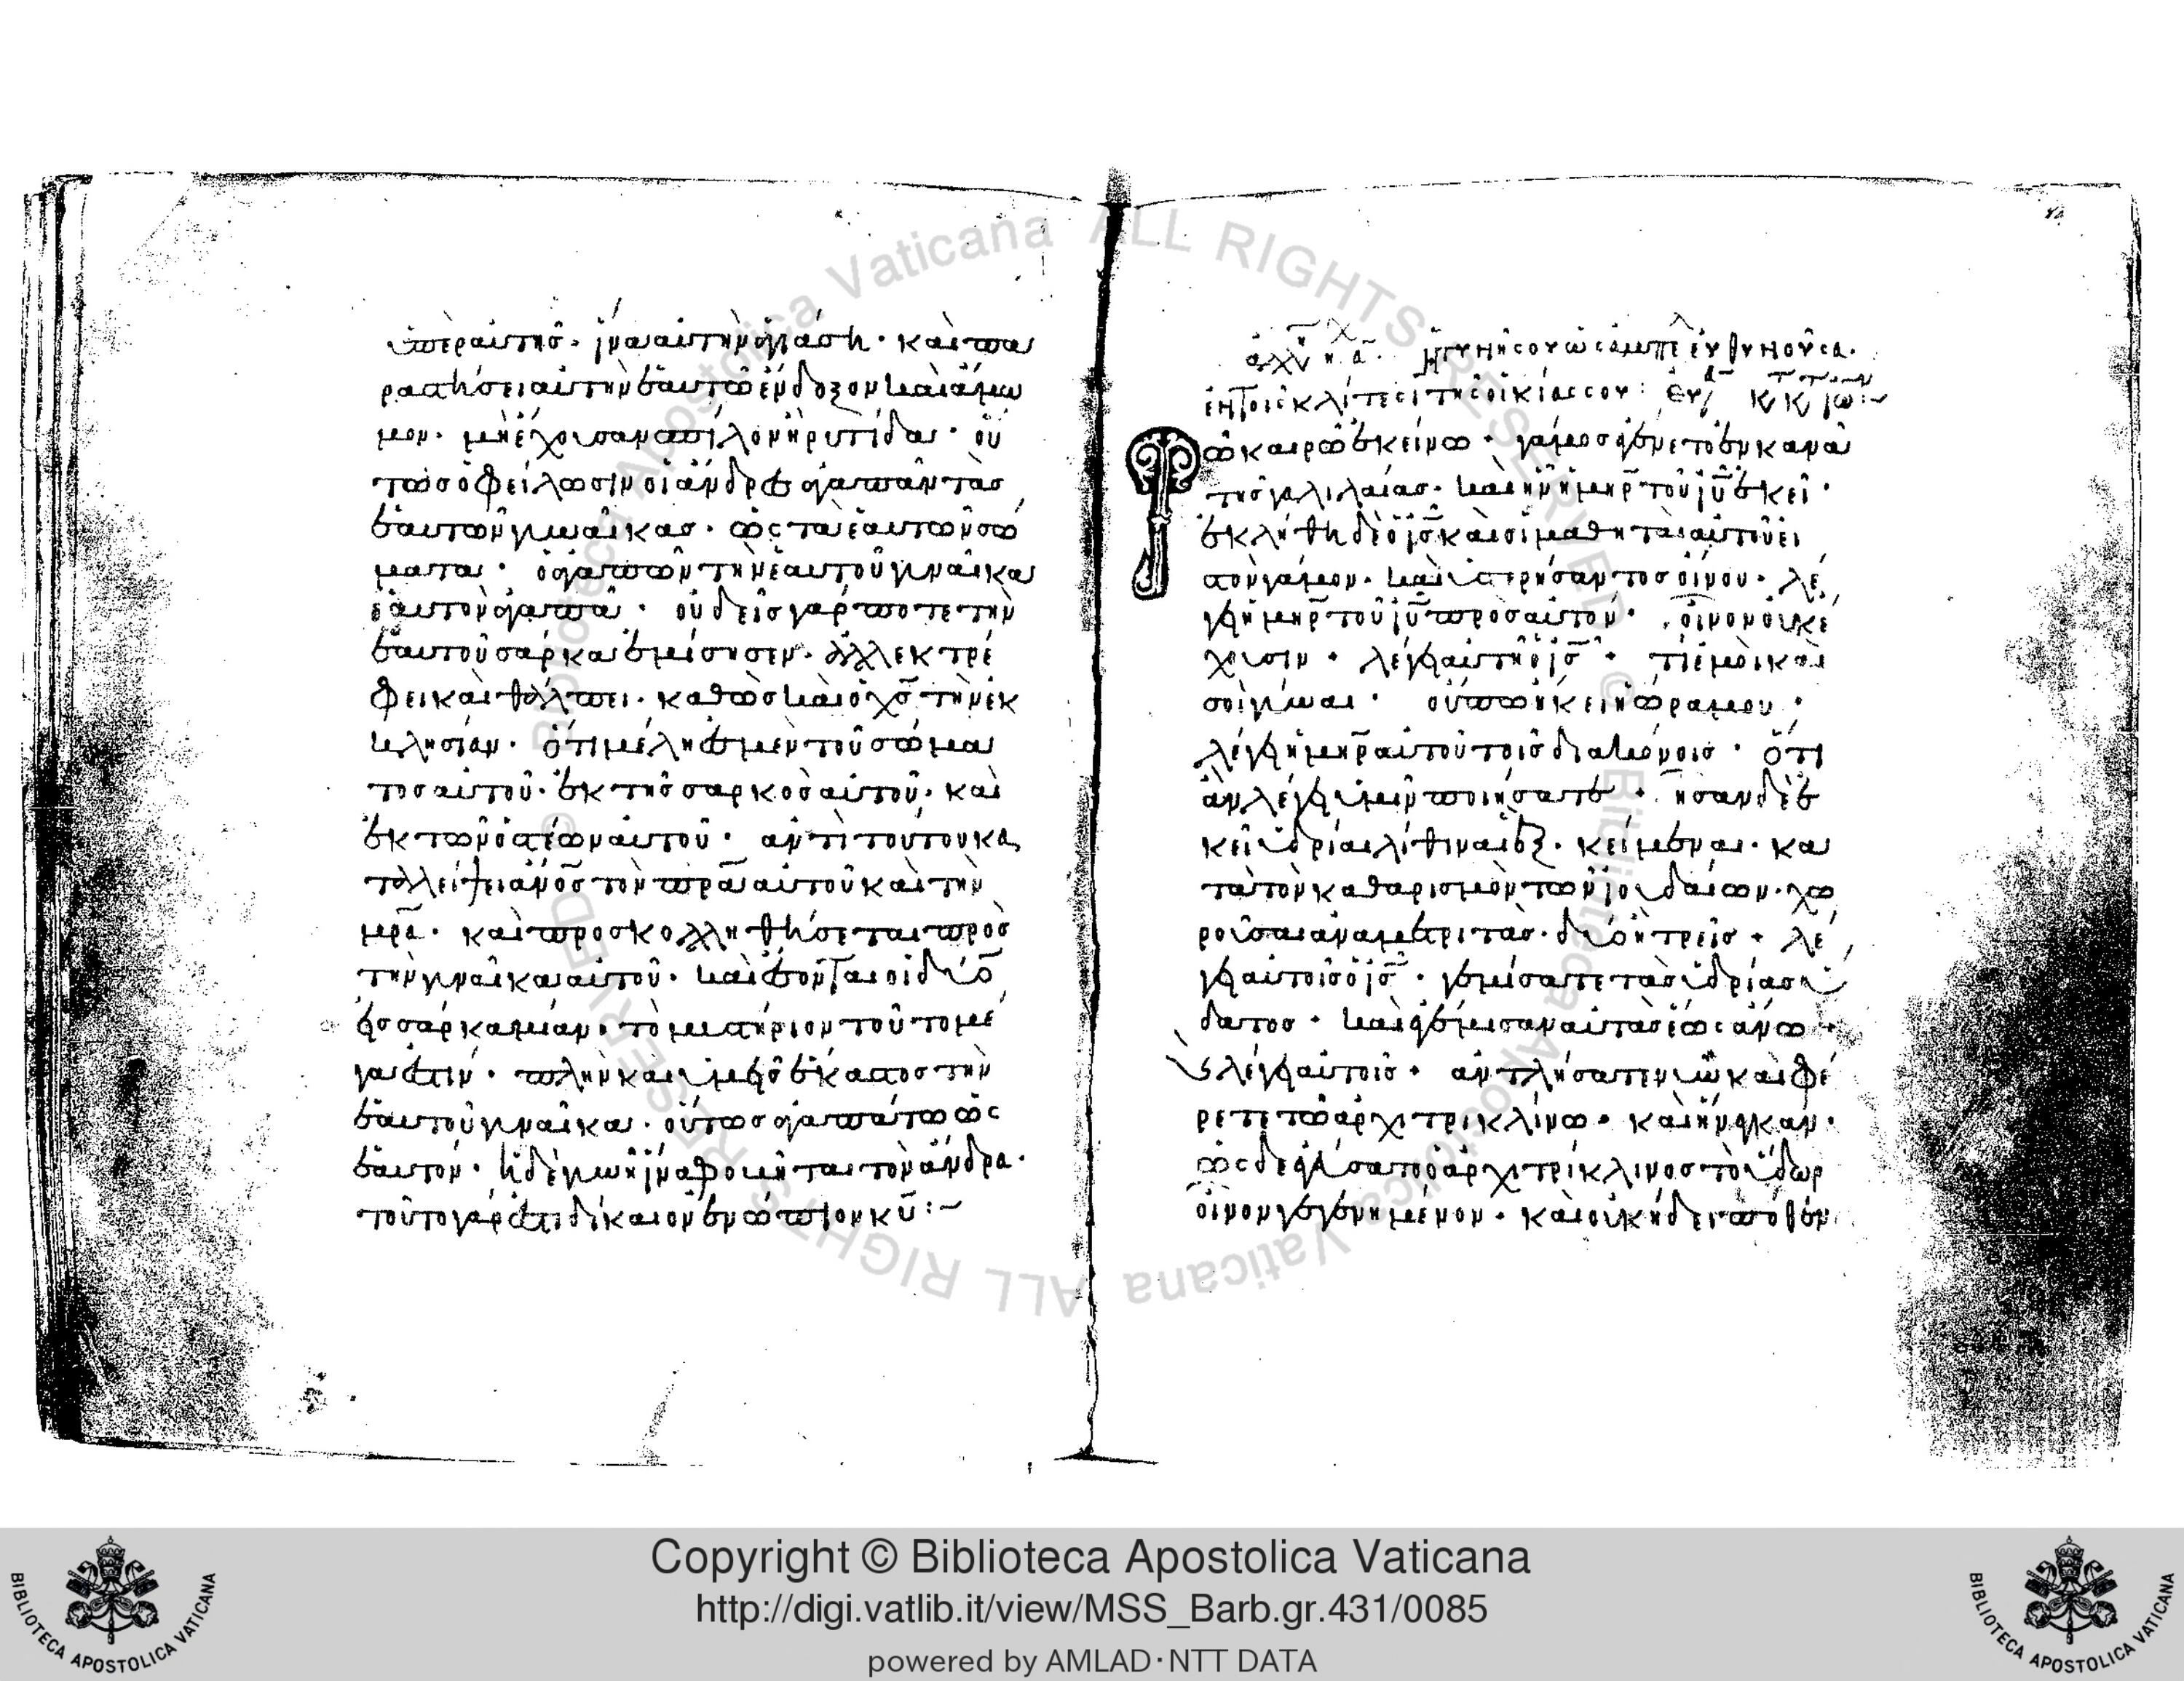 ὑπὲρ αὐτῆσ· ἵνα αὐτὴν ἁγιάση· καὶ πα
ραστήσει αὐτὴν ἑαυτῶ ἔνδοξον καὶ ἄμω
μον· μὴ ἔχουσαν σπίλον ἢ ρυτίδα· οὕ
τωσ ὀφείλωσιν οἱ ἄνδρεσ ἀγαπᾶν τὰσ
ἑαυτῶν γυναῖκασ· ὡς τὰ ἑαυτῶν σώ
ματα· ὁ ἀγαπῶν τὴν ἑαυτοῦ γυναῖκα
ἑαυτὸν ἀγαπᾶ· οὐδεὶσ γάρ ποτε τὴν
ἑαυτοῦ σάρκα ἐμίσησεν· ἀλλ εκτρέ
φει καὶ θάλπει· καθὼσ καὶ ὁ χ̅σ̅ τὴν ἐκ
κλησίαν· ὅτι μέλη ἐσμεν τοῦ σώμα
τοσ αὐτοῦ· ἐκ τῆσ σαρκὸσ αὐτοῦ· καὶ
ἐκ τῶν ὀστέων αὐτοῦ· ἀντὶ τούτου κα
ταλείψει α̅ν̅ο̅σ̅ τὸν π̅ρ̅α̅ αὐτοῦ καὶ τὴν
μ̅ρ̅α̅· καὶ προσκολληθήσεται πρὸσ
τὴν γυναῖκα αὐτοῦ· καὶ ἔσονται οἱ δύο
εἰσ σάρκα μίαν· τὸ μυστήριον τοῦτο μέ
γα ἐστίν· πλὴν καὶ ὑμεῖσ ἕκαστοσ τὴν
ἑαυτοῦ γυναῖκα· οὕτωσ ἀγαπάτω ὡς
ἑαυτόν· ἡ δὲ γυνὴ ἵνα φοβῆται τὸν ἄνδρα·
τοῦτο γάρ ἐστι δίκαιον ἐνώπιον κ̅υ̅:~
Ἡ γυνή σου ὡς ἄμπε εὐθυνοῦσα·
ἐν τοῖς κλίτεσι τῆς οἰκίας σου:
Τῶ καιρῶ ἐκείνω· γάμοσ ἐγένετο ἐν κανᾶ
τῆσ γαλιλαίασ· καὶ ἦν ἡ μ̅η̅ρ̅ τοῦ ι̅υ̅ ἐκεῖ·
ἐκλήθη δὲ ὁ ι̅σ̅ καὶ οἱ μαθηταὶ αὐτοῦ εἰ
σ τὸν γάμον· καὶ ὑστερήσαντοσ οἴνου· λέ
γει ἡ μ̅η̅ρ̅ τοῦ ι̅υ̅ πρὸσ αὐτόν· οἶνον οὐκ ἔ
χουσιν· λέγει αὐτῆ ὁ ι̅σ̅· τί ἐμοὶ καὶ
σοὶ γύναι· οὔπω ἥκει ἡ ὥρα μου·
λέγει ἡ μ̅η̅ρ̅ αὐτοῦ τοῖσ διακόνοισ· ὅτι
ἂν λέγει ὑμῖν ποιήσατε· ἦσαν δὲ ἐ
κεῖ ὑδρίαι λίθιναι ἓξ· κείμεναι· κα
τὰ τὸν καθαρισμὸν τῶν ἰουδαίων· χω
ροῦσαι ἀνὰ μετριτὰσ· δύο ἢ τρεῖσ· λέ
γει αὐτοῖσ ὁ ι̅σ̅· γεμίσατε τὰσ ὑδρίασ ὕ
δατοσ· καὶ ἐγέμισαν αὐτὰσ ἕως ἄνω·
καὶ λέγει αὐτοῖσ· ἀντλήσατε νῦν καὶ φέ
ρετε τῶ ἀρχιτρικλίνω· καὶ ἤνεγκαν·
ὡς δὲ ἐγεύσατο ὁ ἀρχιτρίκλινοσ τὸ ὕδωρ
οἶνον γεγενημένον· καὶ οὐκ ἤδει πόθεν
Copyright © Biblioteca Apostolica Vaticana
http://digi.vatlib.it/view/MSS_Barb.gr.431/0085
powered by AMLAD·NTT DATA
BIBLIOTECA APOSTOLICA VATICANA
BIBLIOTECA APOSTOLICA VATICANA
© Biblioteca Apostolica Vaticana ALL RIGHTS RESERVED
© Biblioteca Apostolica Vaticana ALL RIGHTS RESERVED